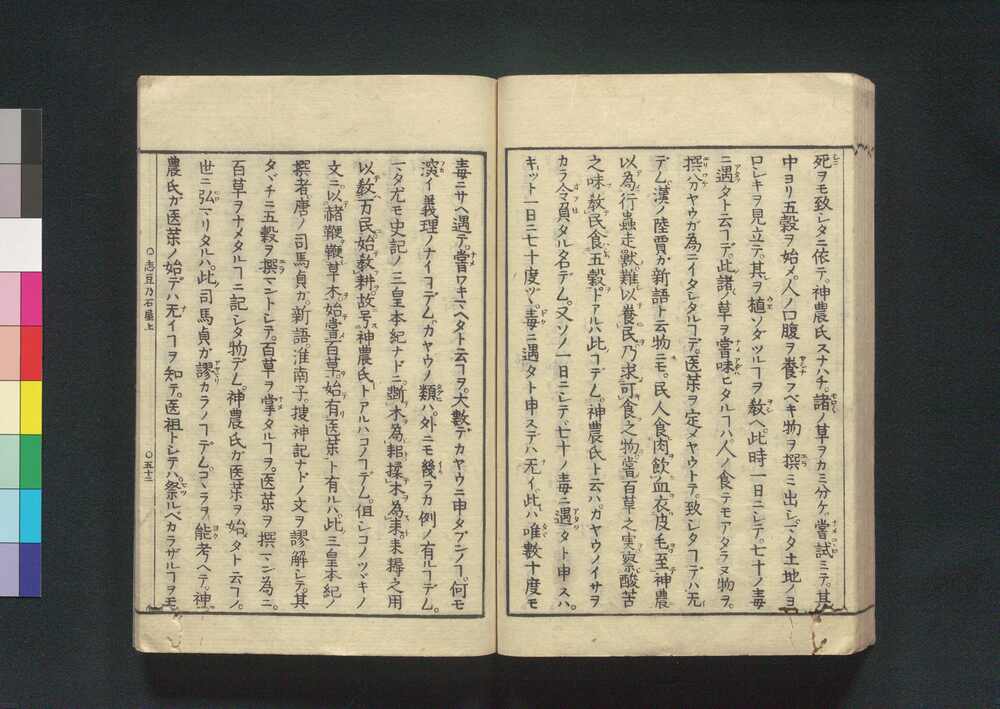 死ヲモ致シタニ依テ。神農氏スナハチ。諸ノ草ヲカミ分ケ。嘗試ミテ。其
中ヨリ五穀ヲ始メ。人ノ口腹ヲ養フベキ物ヲ撰ミ出シ。マタ土地ノヨ
ロシキヲ見立テ。其ヲ植ソダツルヿヲ敎ヘ。此時一日ニシテ。七十ノ毒
ニ遇タト云ヿデ。此諸ノ草ヲ嘗味ヒタルヿハ人ノ食テモアタラヌ物ヲ。
撰分ヤウガ為ニイタシタルヿデ。医薬ヲ定メヤウトテ。致シタヿデハ无
デム。漢ノ陸賈ガ新語ト云物ニモ。民人食肉飲血衣皮毛至神農
以為行蟲走獣難以養民乃求可食之物嘗百草之実察酸苦
之味敎民食五穀トアルハ此ヿデム。神農氏ト云ハ。ガヤウノイサヲ
カラ今負タル名デム。又ソノ一日ニシテ。七十ノ毒ニ遇タト申スハ。
キット一日ニ七十度ヅヽ。毒ニ遇タト申ステハ无イ。此ハ唯數十度モ
毒ニサヘ遇テ。嘗ワキマヘタト云ヿヲ。大數デカヤウニ申タブンノヿ。何モ
深イ義理ノナイヿデム。カヤウノ類ハ。外ニモ幾ラカ例ノ有ルヿデム。
マタ尤モ史記ノ三皇本紀ナドニ。斲木為耜揉木為耒耒耨之用
以敎万民始敎耕故号神農氏トアルハコノヿデム。但シコノツヾキノ
文ニ以赭鞭鞭草木始嘗百草。始有医薬ト有ルハ。此三皇本紀ノ
撰者唐ノ司馬貞ガ。新語。淮南子。捜神記ナドノ文ヲ謬解シテ。其
タヾチニ五穀ヲ撰マントシテ。百草ヲ掌タルヿヲ。医薬ヲ撰マン為ニ。
百草ヲナメタルヿニ記シタ物デム。神農氏ガ医薬ヲ始タト云ヿノ。
世ニ弘マリタルハ。此司馬貞ガ謬カラノヿデム。コヽラヲ能考ヘテ。神
農氏ガ医薬ノ始デハ无イヿヲ知テ。医祖トシテハ。祭ルベカラザルヿヲモ
○志豆乃石屋上 ○五十二